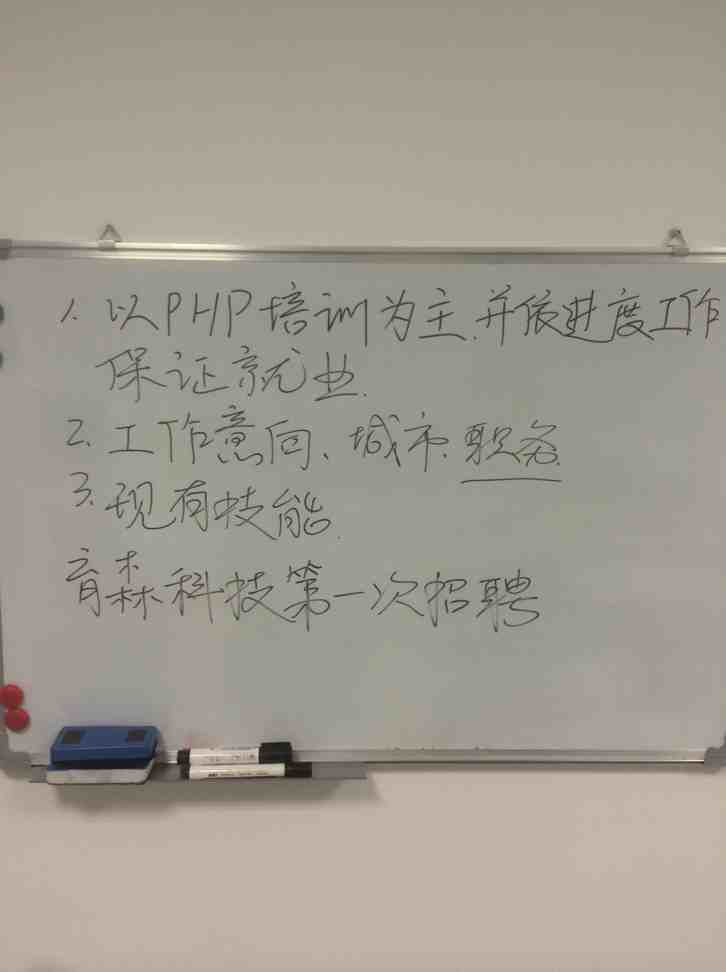 1. 以PHP培训为主.并依进度工作
保证就业.
2. 工作意向、城市.职务.
3. 现有技能.
育森科技第一次招聘